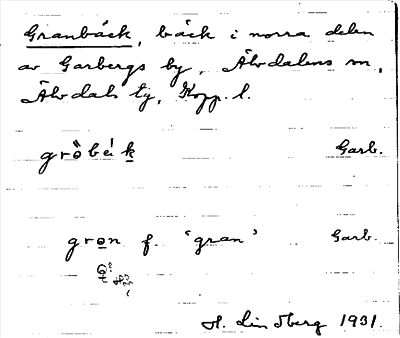 Granbäck, bäck i norra delen
av Garbergs by, Älvdalens sn,
Älvdals tg, Kopp. l.
grò̀bék Garb.
gron f. 'gran' Garb.
H. Lindberg 1931.